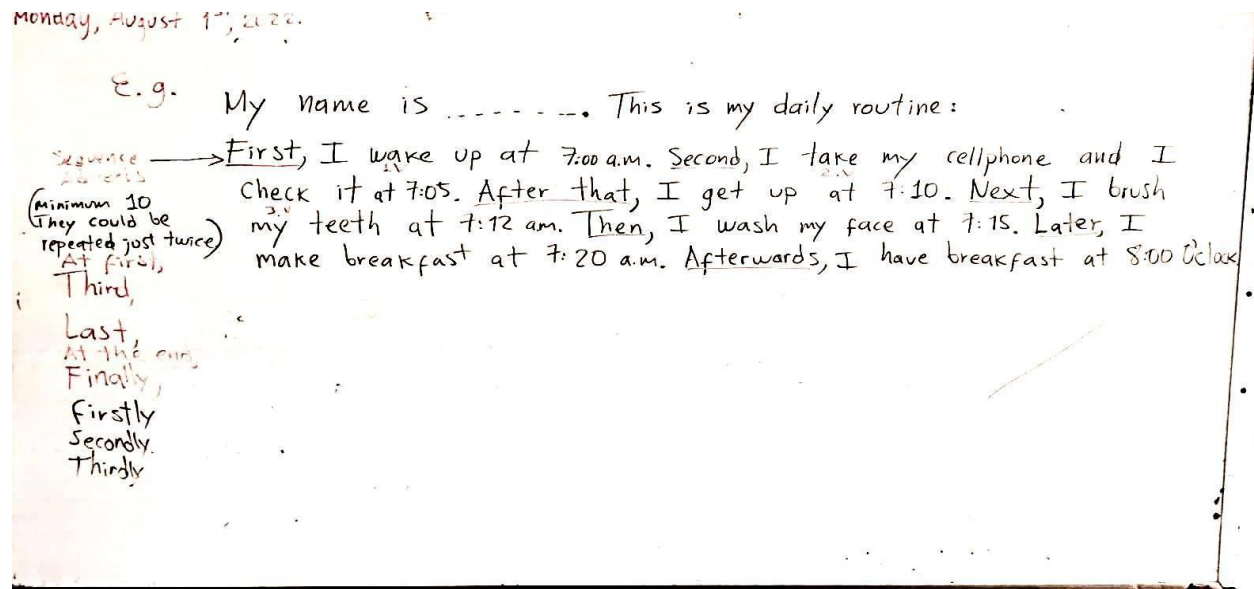 Monday, August 1st, 2022.
E.g. My name is ........... This is my daily routine:
Sequence → First, I wake up at 7:00 a.m. Second, I take my cellphone and I
Adverbs
1.V 2.V
check it at 7:05. After that, I get up at 7:10. Next, I brush
3.V
my teeth at 7:12 am. Then, I wash my face at 7:15. Later, I
make breakfast at 7:20 a.m. Afterwards, I have breakfast at 8:00 O'clock
(Minimum 10
They could be
repeated just twice)
At first,
Third,
Last,
At the end,
Finally,
Firstly
Secondly.
Thirdly